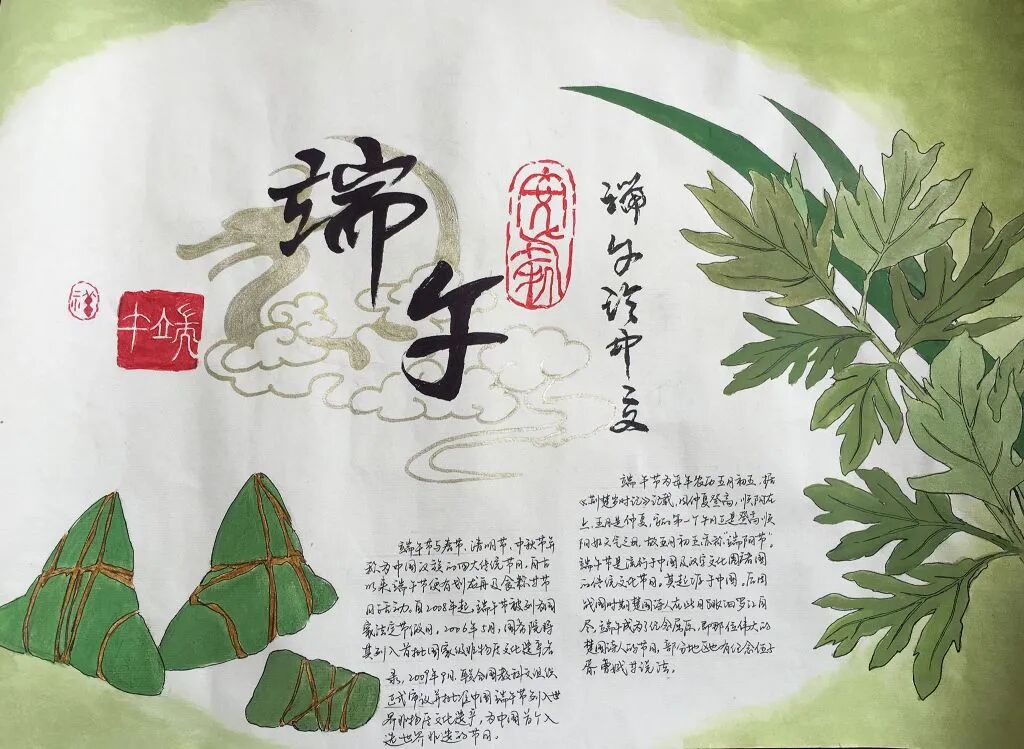 端午
安康
祥
端午
端午
端午节为每年农历五月初五,据
《荆楚岁时记》记载,因仲夏登高,顺阳在
上,五月是仲夏,它的第一个午日正是登高顺
阳好天气之日,故五月初五亦称"端阳节"。
端午节是流行于中国及汉字文化圈诸国
的传统文化节日。其起源于中国,后因
战国时期楚国诗人在此日跳汨罗江自
尽,端午成为了纪念屈原,即那位伟大的
楚国诗人的节日,部分地区也有纪念伍子
胥、曹娥等说法。
端午节与春节、清明节、中秋节并
称为中国汉族的四大传统节日。自古
以来端午节便有划龙舟及食粽等节
日活动。自2008年起,端午节被列为国
家法定节假日。2006年5月,国务院将
其列入首批国家级非物质文化遗产名
录,2009年9月,联合国教科文组织
正式审议并批准中国端午节列入世
界非物质文化遗产,为中国首个入
选世界非遗的节日。